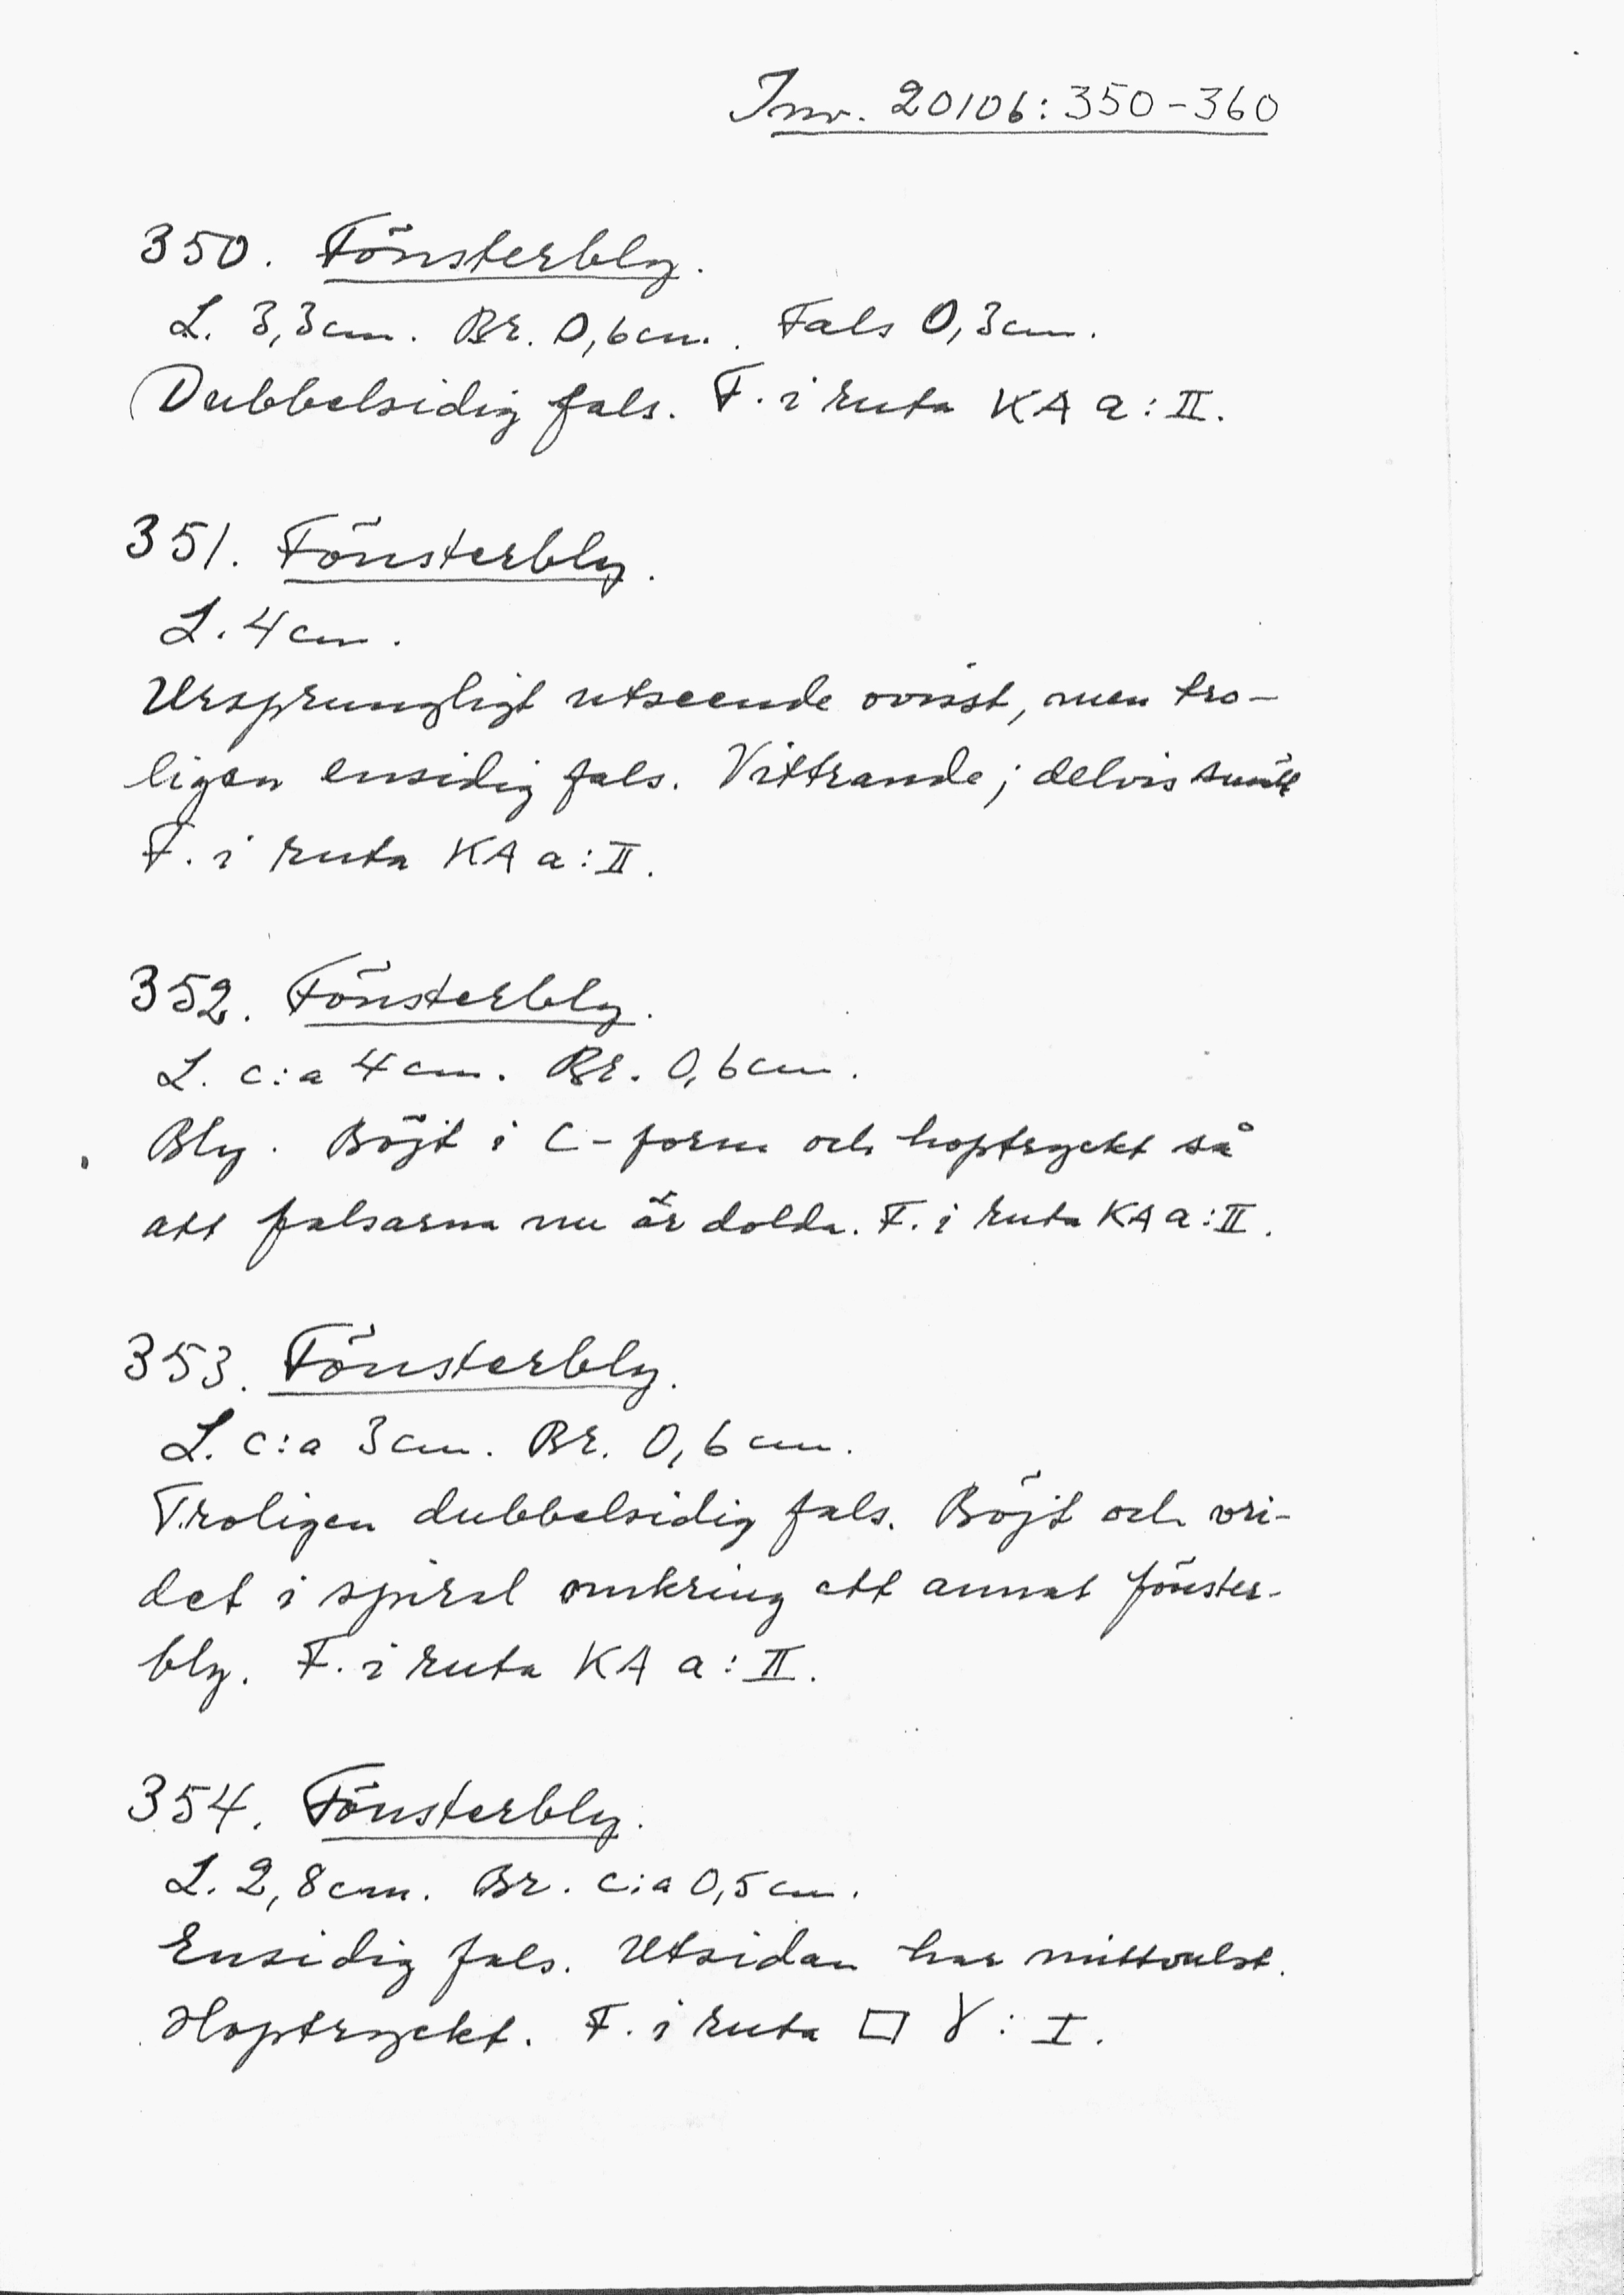 Inv. 20106:350-360
350. Fönsterbly.
L. 3,3cm. Br. 0,6cm. Fals 0,3cm.
Dubbelsidig fals. F. i ruta KA a:II.
351. Fönsterbly.
L. 4cm.
Ursprungligt utseende ovisst, men tro-
ligen ensidig fals. Vittrande; delvis smält
F. i ruta KA a:II.
352. Fönsterbly.
L. c:a 4cm. Br. 0,6cm.
Bly. Böjt i C-form och hoptryckt så
att falsarna nu är dolda. F. i ruta KA a:II.
353. Fönsterbly.
L. c:a 3cm. Br. 0,6cm.
Troligen dubbelsidig fals. Böjt och vri-
det i spiral omkring ett annat fönster-
bly. F. i ruta KA a:II.
354. Fönsterbly.
L. 2,8cm. Br. c:a 0,5cm.
Ensidig fals. Utsidan har mittvulst.
Hoptryckt. F. i ruta □ γ: I.